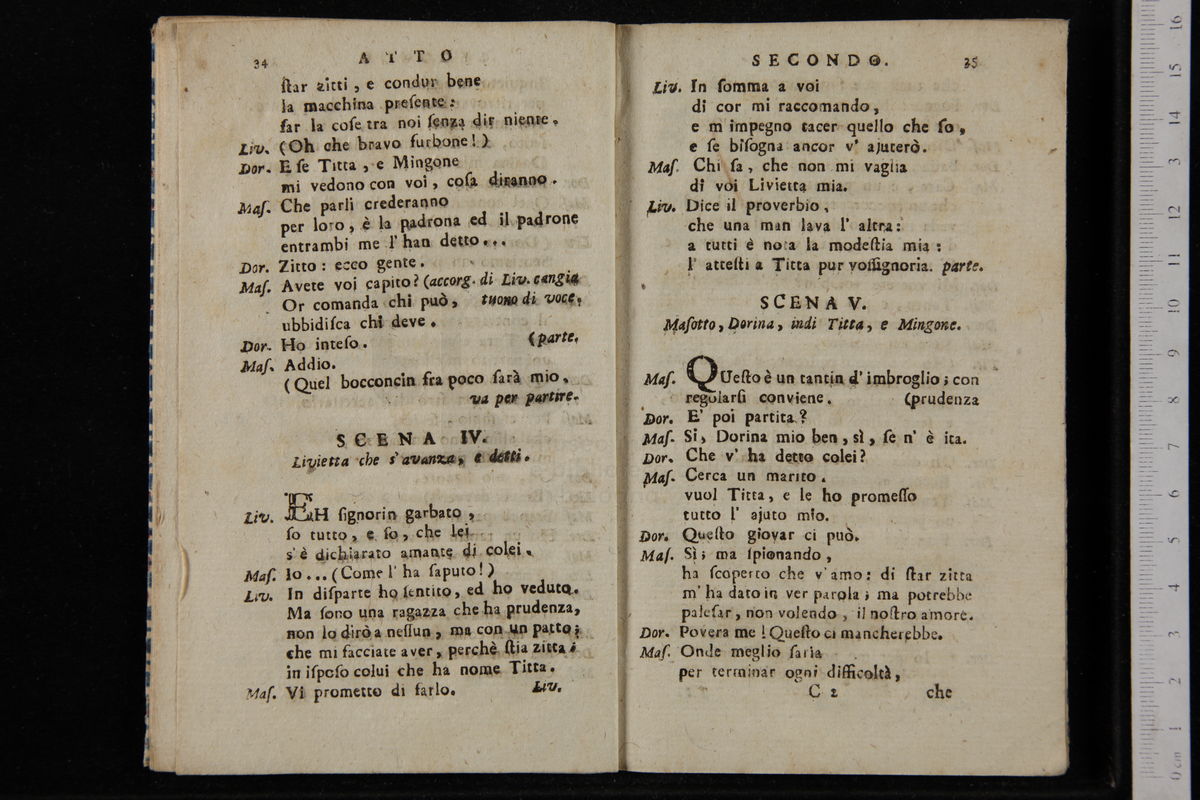 34
ATTO
ſtar zitti, e condur bene
la macchina preſente:
far la coſe tra noi ſenza dir niente.
Liv. (Oh che bravo furbone!)
Dor. E ſe Titta, e Mingone
mi vedono con voi, coſa diranno.
Maſ. Che parli crederanno
per loro, è la padrona ed il padrone
entrambi me l'han detto...
Dor. Zitto: ecco gente.
Maſ. Avete voi capito? (accorg. di Liv. cangia
Or comanda chi può, tuono di voce.
ubbidiſca chi deve.
Dor. Ho inteſo. (parte.
Maſ. Addio.
(Quel bocconcin fra poco ſarà mio.
va per partire.
SCENA IV.
Livietta che s'avanza, e detti.
Liv. EH ſignorin garbato,
ſo tutto, e ſo, che lei
s'è dichiarato amante di colei.
Maſ. Io... (Come l'ha ſaputo!)
Liv. In diſparte ho ſentito, ed ho veduto.
Ma ſono una ragazza che ha prudenza,
non lo dirò a neſſun, ma con un patto;
che mi facciate aver, perchè ſtia zitta;
in iſpoſo colui che ha nome Titta.
Maſ. Vi prometto di farlo. Liv.
SECONDO.
35
Liv. In ſomma a voi
di cor mi raccomando,
e m impegno tacer quello che ſo,
e ſe biſogna ancor v' ajuterò.
Maſ. Chi ſa, che non mi vaglia
di voi Livietta mia.
Liv. Dice il proverbio,
che una man lava l' altra:
a tutti è nota la modeſtia mia:
l' atteſti a Titta pur voſſignoria. parte.
SCENA V.
Maſotto, Dorina, indi Titta, e Mingone.
Maſ. QUeſto è un tantin d' imbroglio; con
regolarſi conviene. (prudenza
Dor. E' poi partita?
Maſ. Sì, Dorina mio ben, sì, ſe n' è ita.
Dor. Che v' ha detto colei?
Maſ. Cerca un marito.
vuol Titta, e le ho promeſſo
tutto l' ajuto mio.
Dor. Queſto giovar ci può.
Maſ. Sì; ma ſpionando,
ha ſcoperto che v'amo: di ſtar zitta
m' ha dato in ver parola; ma potrebbe
paleſar, non volendo, il noſtro amore.
Dor. Povera me! Queſto ci mancherebbe.
Maſ. Onde meglio ſaria
per terminar ogni difficoltà,
C 2 che
0 cm 1 2 3 4 5 6 7 8 9 10 11 12 13 14 15 16